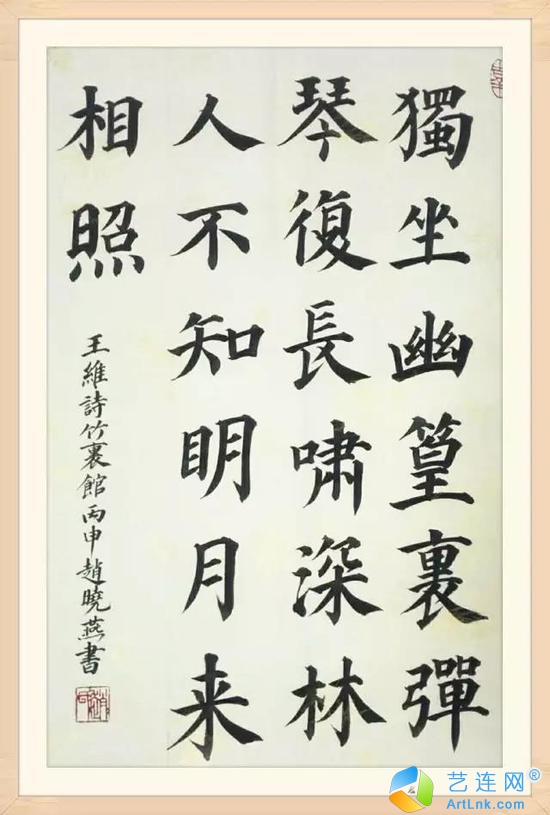 獨坐幽篁裏彈
琴復長嘯深林
人不知明月来
相照
王維詩竹裏館丙申趙曉燕書
艺连网®
ArtLnk.com